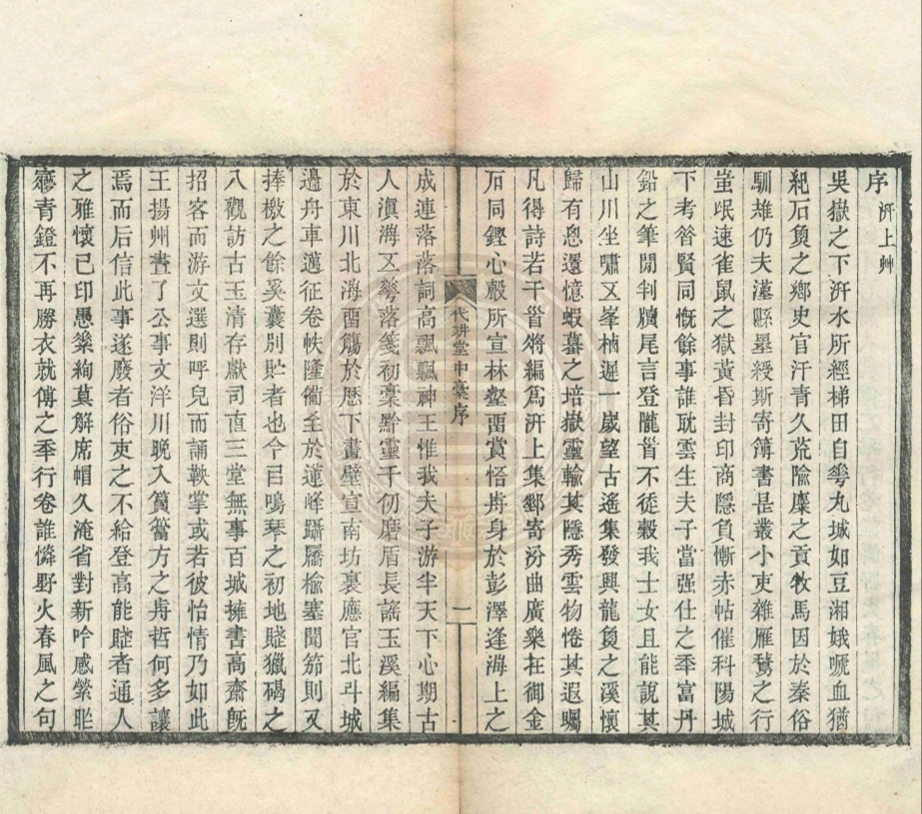 序 汧上艸
吳嶽之下汧水所經梯田自雩丸城如豆湘娥嚦血猶
紀石負之鄉史官汗青久荒隃麋之貢牧馬因於秦俗
馴雉仍夫漢縣墨綬斯寄簿書是叢小吏雜雁鶩之行
蚩氓速雀鼠之獄黃昏封印商隱負慚赤帖催科陽城
下考昝賢同慨餘事誰耽雲生夫子當强仕之季富丹
鉛之筆閒判牘尾言登隴首不徒穀我士女且能說其
山川坐嘯五峯栖遲一歲望古遙集發興龍負之溪懷
歸有恖還憶蝦蟇之培嶽靈輸其隱秀雲物惓其遐矚
凡得詩若干首將編爲汧上集郵寄汾曲廣樂在御金
石同鏗心縠所宣林壑畱賞悟舟身於彭澤逢海上之
成連落落詞高飄飄神王惟我夫子游半天下心期古
人滇海五雩落箋初稾黔靈千仞磨盾長謠玉溪編集
於東川北海畱觴於歷下畫壁宣南坊裏應官北斗城
邊舟車邁征卷帙隆衢至於蓮峰躡屩楡塞聞笳則又
捧檄之餘奚囊別貯者也今㠯鳴琴之初地賡獵碣之
八觀訪古玉清存獻司直三堂無事百城擁書高齋旣
招客而游文選則呼兒而誦鞅掌或若彼怡情乃如此
王揚州晝了公事文洋川晚入篔簹方之歬哲何多讓
焉而后信此事遂廢者俗吏之不給登高能賦者通人
之雅懷已印愚築絢莫解席帽久淹省對新吟感縈毷
氉青鐙不再勝衣就傅之季行卷誰憐野火春風之句
代耕堂中稾序
一